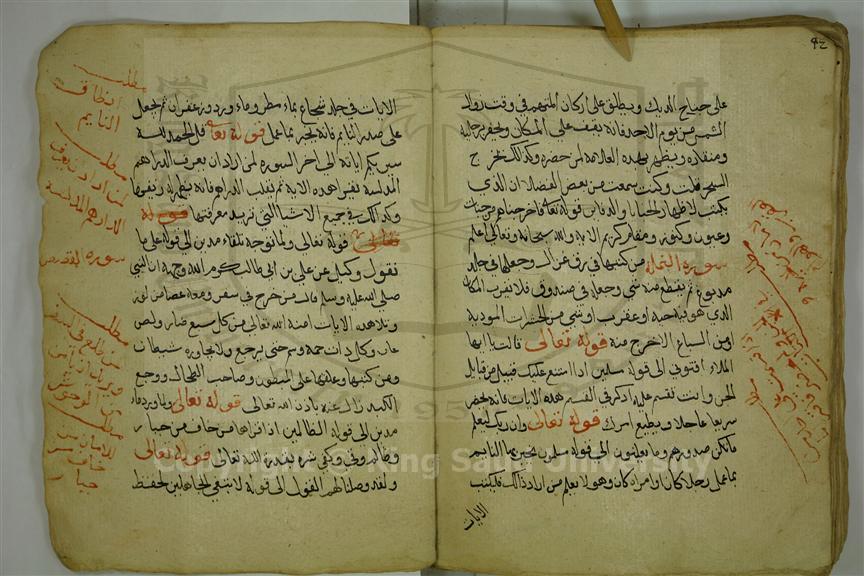 ٩٤
على جناح الديك ويطلق على اركان المتهم في وقت زوال
الشمس من يوم الاحد فانه يقف على المكان ويحفر برجليه
ومنقاره ويظهر بهذه العلامة لمن حضره وكذلك تخرج
السحر قلت وكنت سمعت من بعض الفضلا ان الذي
يكتب لاظهار الخبايا والدفاين قوله تعالى فاخرجناهم من جنات
وعيون وكنوز ومقام كريم الاية والله سبحانه وتعالى اعلم
سورة النمل من كتبها في رق غزال وجعلها في جلد
مدبوغ لم يقطع منه شي وجعله في صندوق فلا يقرب المكان
الذي هو فيه حية او عقرب او شي من الحشرات الموذية
او من السباع الا خرج منه قوله تعالى قالت يا ايها
الملاء افتوني الى قوله مسلمين اذا امتنع عليك قبيل من قبايل
الجن وانت تقسم عليه اذكر في القسم هذه الايات فانه يحضر
سريعا عاجلا ويطيع امرك قوله تعالى وان ربك ليعلم
ما تكن صدورهم وما يعلنون الى قوله مسلمون يخبر بها النايم
بما عمل رجلا كان او امراة كان وهو لا يعلم من اراد ذلك فليكتب
الايات
الايات في جلد شجاع بماء مطر وماء ورد وزعفران ثم يجعل
على صدر النايم فانه يخبر بما عمل قوله تعا قل الحمد لله
سيريكم اياته الى اخر السورة لمن اراد ان يعرف الدراهم
المدلسة يقرا هذه الاية ثم يقلب الدراهم فانه يظهر له زيفها
وكذلك في جميع الاشيا التي تريد معرفتها قوله
تعالى قوله تعالى ولما توجه تلقاء مدين الى قوله على ما
نقول وكيل عن علي بن ابي طالب كرم الله وجهه ان النبي
صلى الله عليه وسلم قال من خرج في سفر ومعه عصا من لوز
وتلا هذه الايات امنه الله تعالى من كل سبع ضار ولص
عاد وكل ذات حمة وسم حتى يرجع ولا يجاوره شيطان
ومن كتبها وعلقها على المبطون وصاحب الطحال ووجع
الكبد زال عنه باذن الله تعالى قوله تعالى ولما ورد ماء
مدين الى قوله الظالمين اذا قراها من خاف من جبار
وظالم وقي وكفي شره بقدرة الله تعالى قوله تعالى
ولقد وصلنا لهم القول الى قوله لا نبتغي الجاهلين لحفظ
مطلب
انطاق
النايم
مطلب
لمن اراد ان يعرف
الدراهم المدلسة
سورة القصص
مطلب
مطلب
للامان من
خاف من
جبار
Copyright © King Saud University